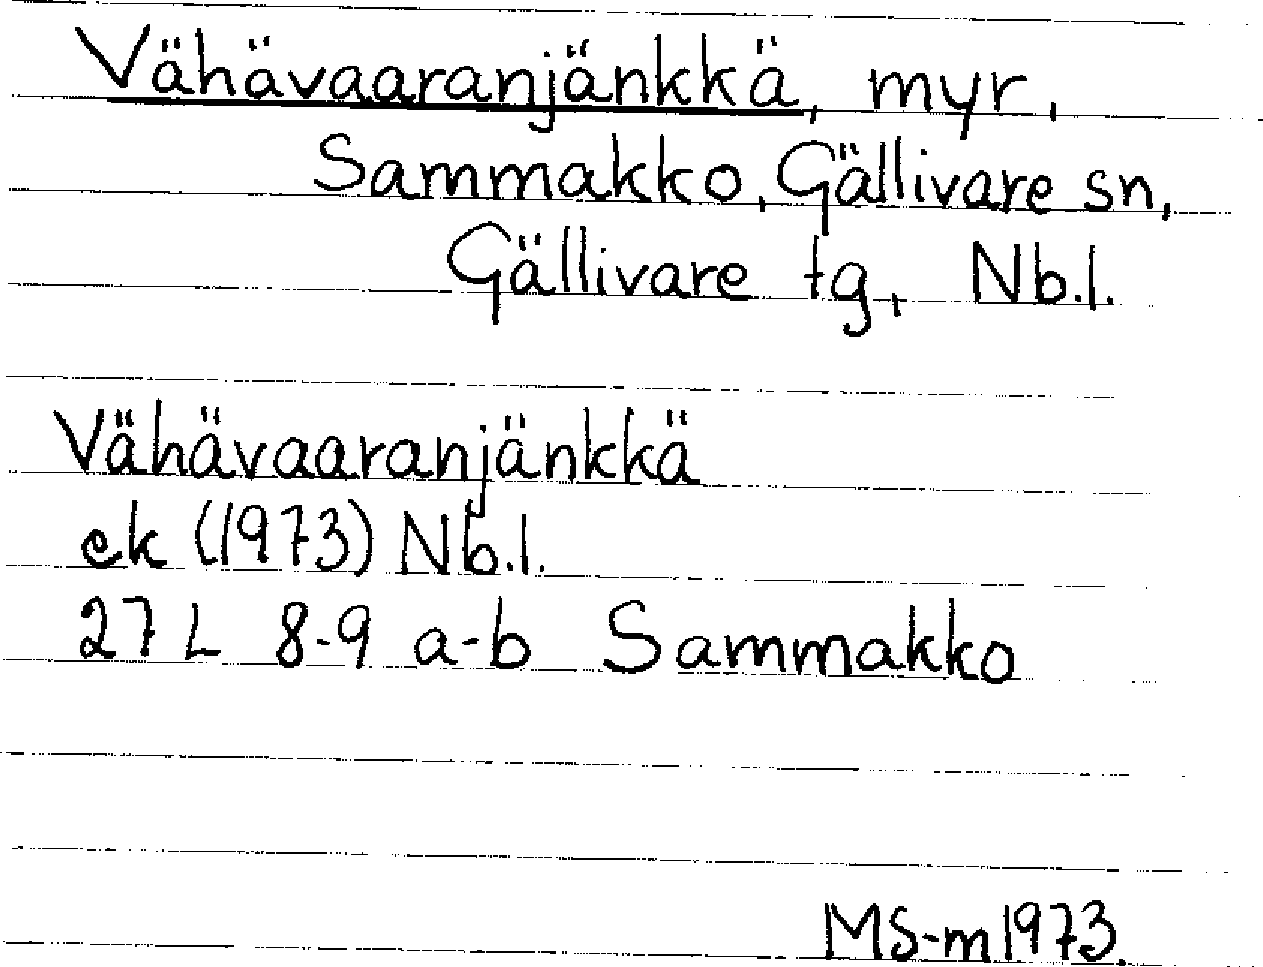 Vähävaaranjänkkä, myr,
Sammakko, Gällivare sn,
Gällivare tg, Nb.l.
Vähävaaranjänkkä
ek (1973) Nb.l.
27 L 8-9 a-b Sammakko
MS-m1973.